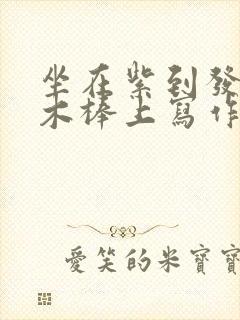 坐在紫到發
木棒上寫作
愛笑的米寶寶